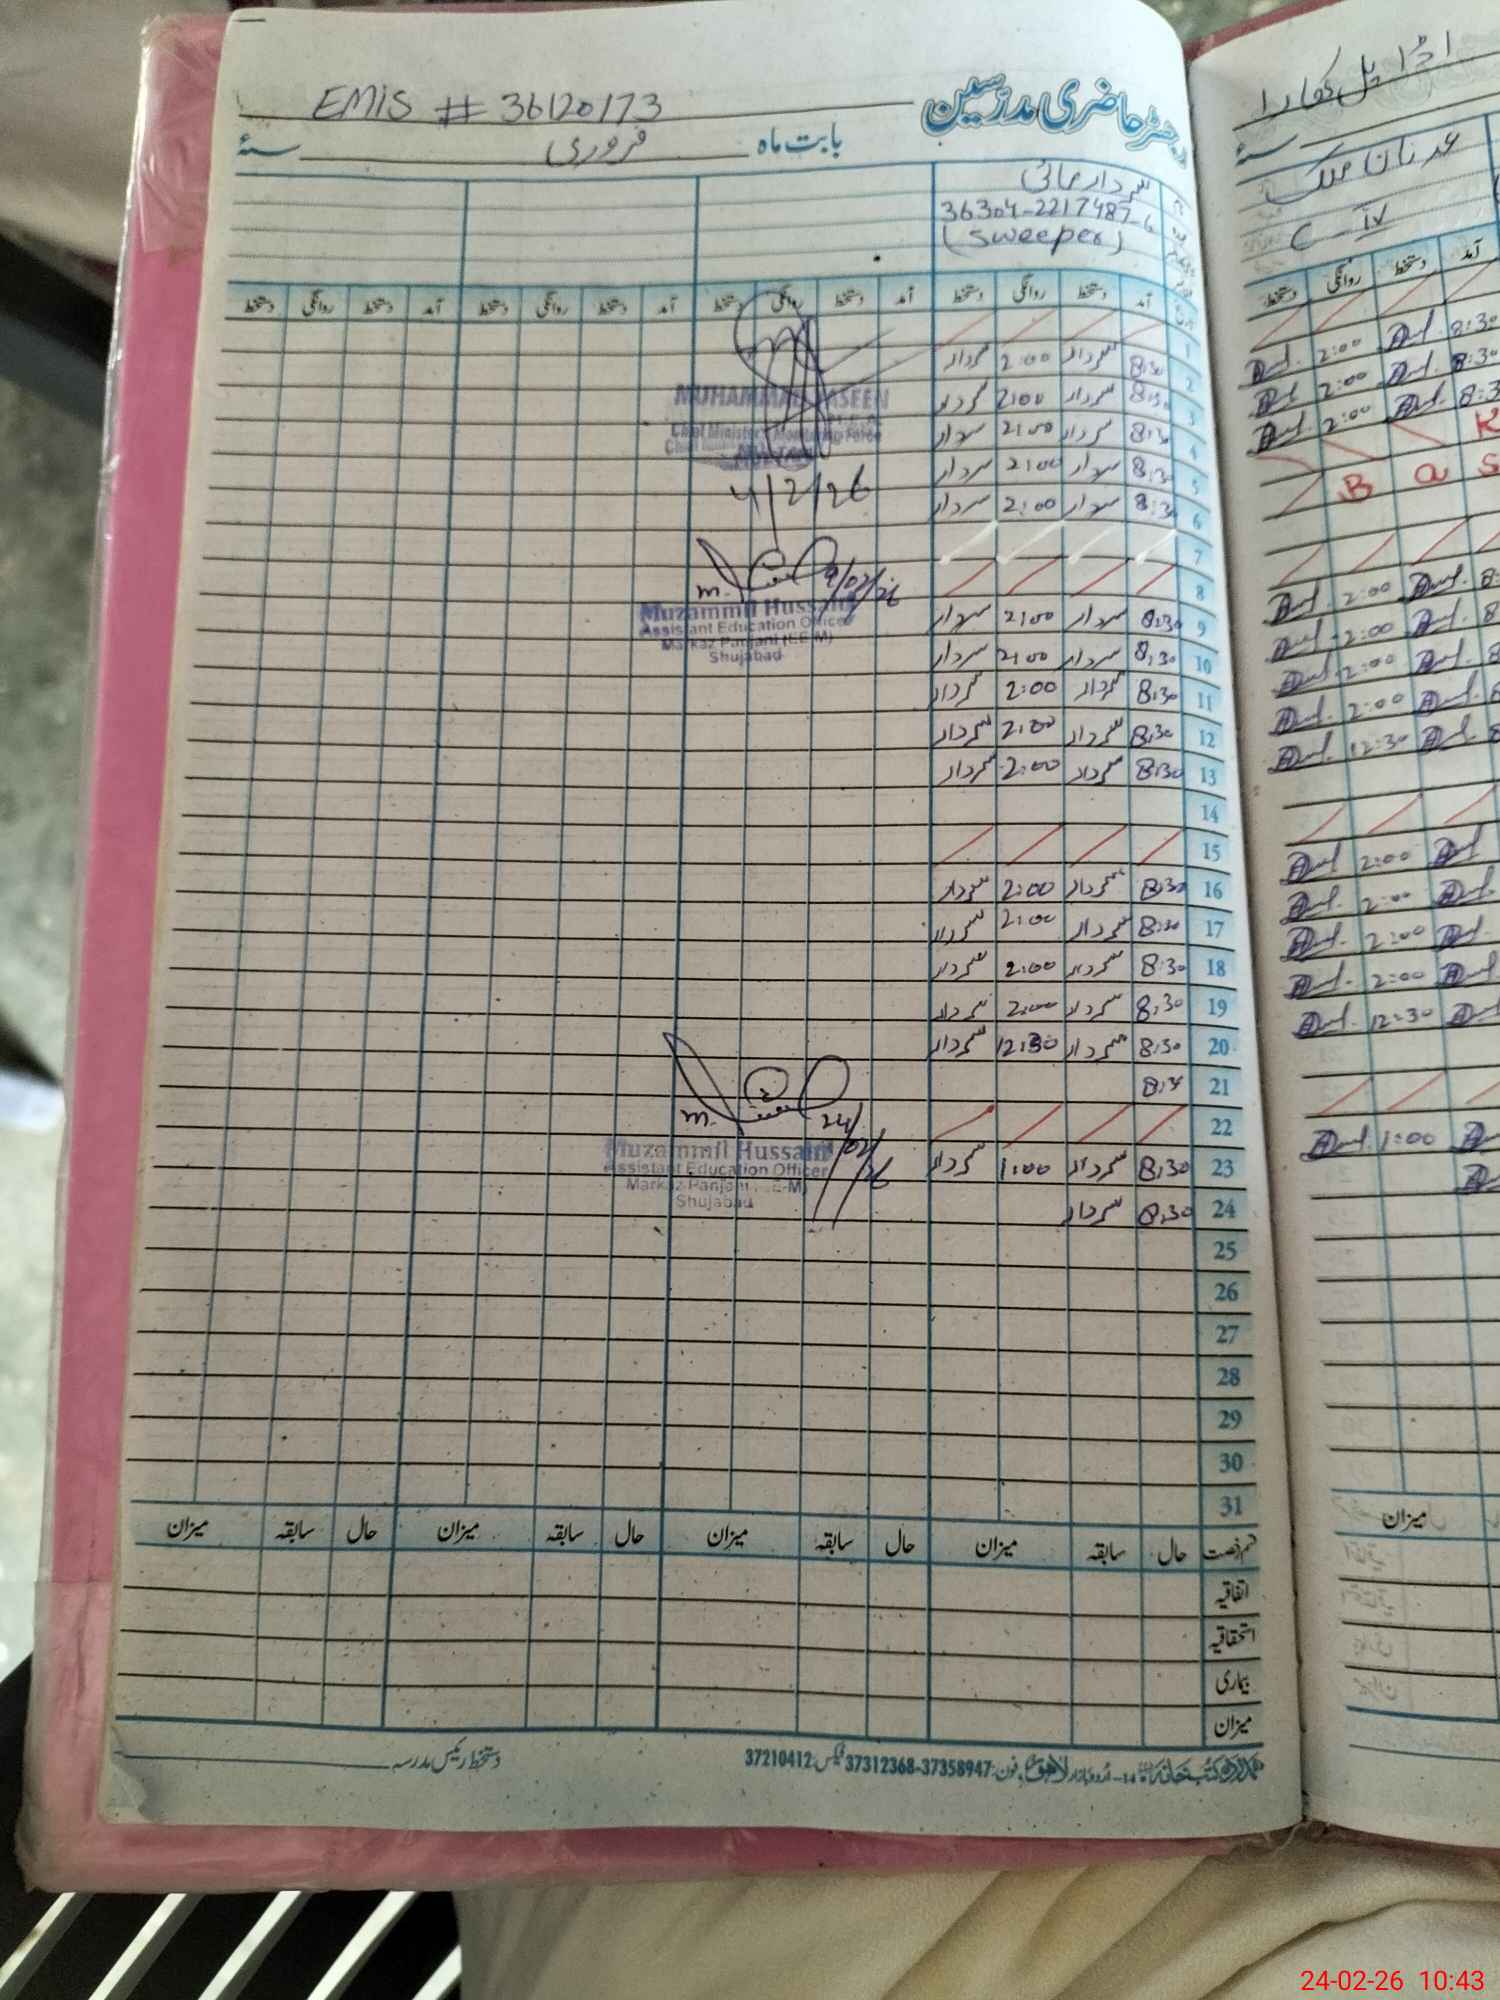 EMIS # 36120173
رجسٹر حاضری مدرسین
بابت ماہ فروری سنہ
سردار مائی
36304-2217487-6
(Sweeper)
آمد دستخط روانگی دستخط آمد دستخط روانگی دستخط آمد دستخط روانگی دستخط آمد دستخط روانگی دستخط
1
2 8:30 سردار 2:00 سردار
3 8:30 سردار 2:00 سردار
4 8:30 سردار 2:00 سردار
5 8:30 سردار 2:00 سردار
6 8:30 سردار 2:00 سردار
7
8
9 8:30 سردار 2:00 سردار
10 8:30 سردار 2:00 سردار
11 8:30 سردار 2:00 سردار
12 8:30 سردار 2:00 سردار
13 8:30 سردار 2:00 سردار
14
15
16 8:30 سردار 2:00 سردار
17 8:30 سردار 2:00 سردار
18 8:30 سردار 2:00 سردار
19 8:30 سردار 2:00 سردار
20 8:30 سردار 12:30 سردار
21
22
23 8:30 سردار 1:00 سردار
24 8:30 سردار
25
26
27
28
29
30
31
MUHAMMAD YASEEN
Chief Ministers Monitoring Force
MULTAN
4/2/26
9/02/26
Muzammil Hussain
Assistant Education Officer
Markaz Panjani (EE-M)
Shujabad
24/02/26
Muzammil Hussain
Assistant Education Officer
Markaz Panjani (EE-M)
Shujabad
قسم رخصت حال سابقہ میزان حال سابقہ میزان حال سابقہ میزان حال سابقہ میزان
اتفاقیہ
استحقاقیہ
بیماری
میزان
دستخط رئیس مدرسہ
14-اردو بازار لاہور فون: 37358947-37312368 فیکس: 37210412
عدنان ملک
C-IV
آمد دستخط روانگی دستخط
8:30 2:00
8:30 2:00
2:00
B a s
2:00
2:00
2:00
2:00
12:30
2:00
2:00
2:00
2:00
12:30
1:00
میزان
24-02-26 10:43